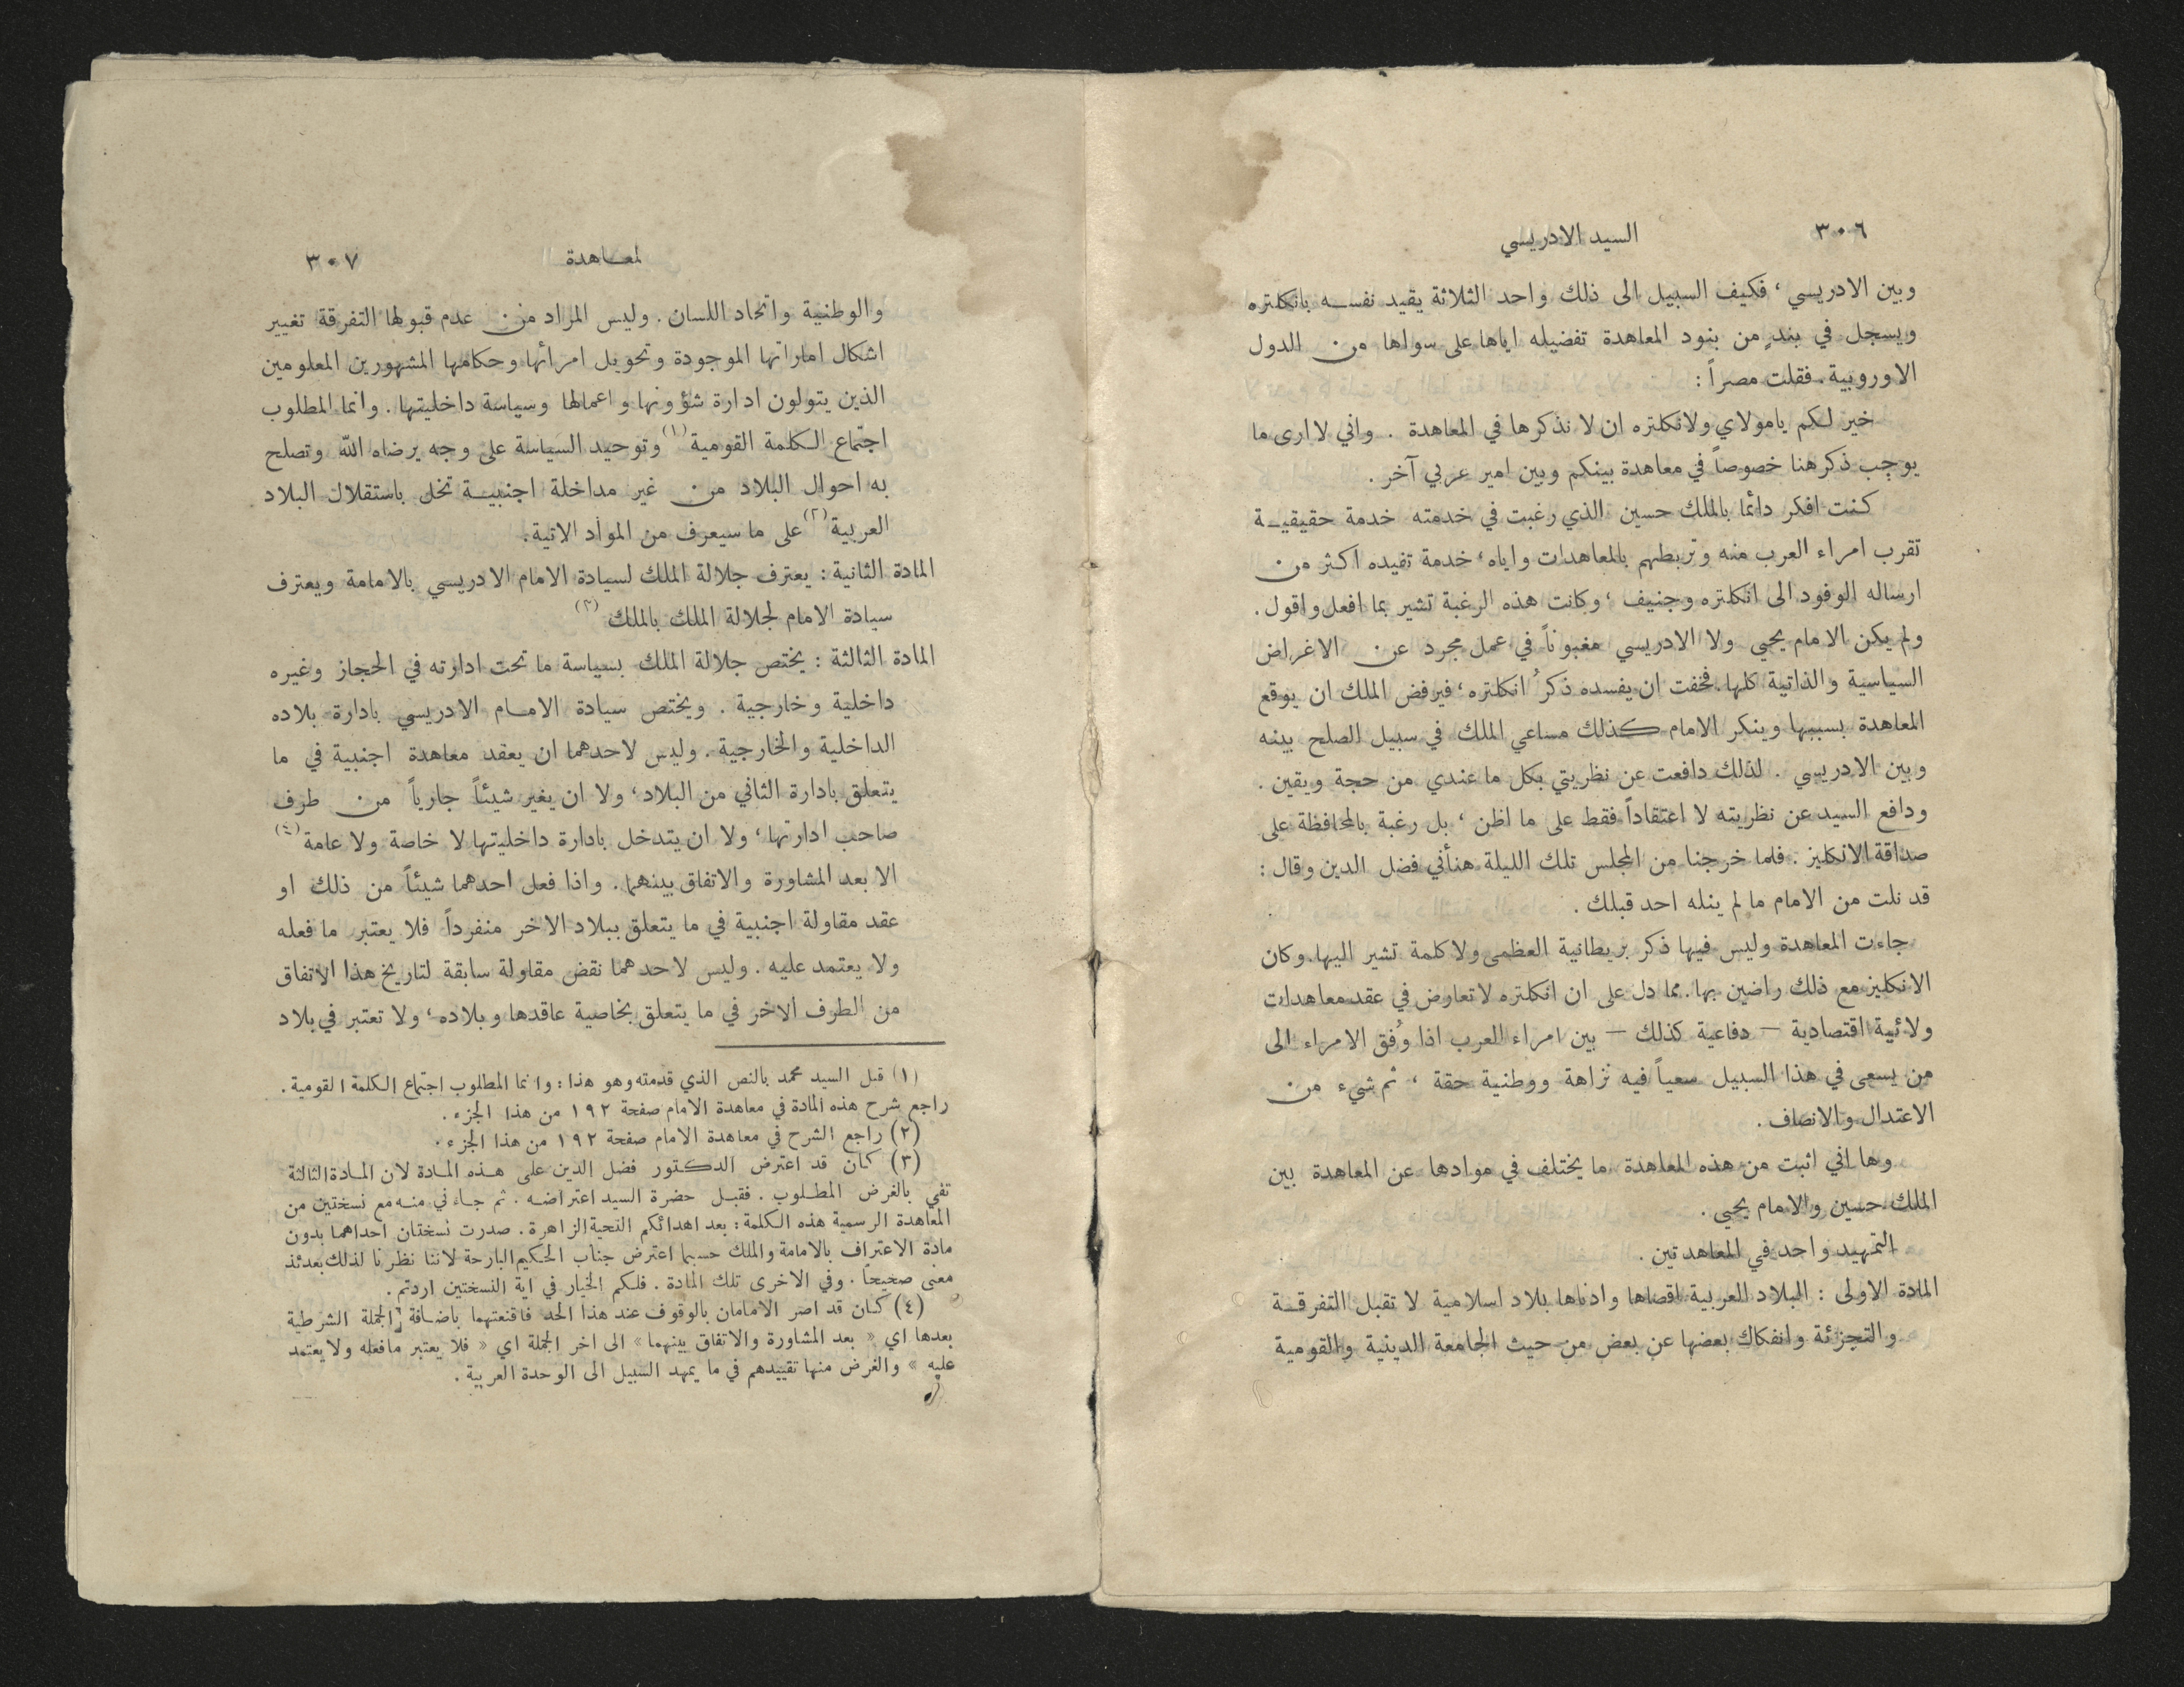 ٣٠٦
السيد الادريسي
وبين الادريسي، فكيف السبيل الى ذلك واحد الثلاثة يقيد نفسه بانكلتره
ويسجل في بندٍ من بنود المعاهدة تفضيله اياها على سواها من الدول
الاوروبية. فقلت مصراً :
خير لكم يامولاي ولانكلتره ان لا نذكرها في المعاهدة . واني لا ارى ما
يوجب ذكرهنا خصوصاً في معاهدة بينكم وبين امير عربي آخر .
كنت افكر دائماً بالملك حسين الذي رغبت في خدمته خدمة حقيقية
تقرب امراء العرب منه وتربطهم بالمعاهدات واياه، خدمة تفيده اكثر من
ارساله الوفود الى انكلتره وجنيف ، وكانت هذه الرغبة تشير بما افعل واقول .
ولم يكن الامام يحيي ولا الادريسي مغبوناً في عمل مجرد عن الاغراض
السياسية والذاتية كلها. فخفت ان يفسده ذكرُ انكلتره، فيرفض الملك ان يوقع
المعاهدة بسببها وينكر الامام كذلك مساعي الملك في سبيل الصلح بينه
وبين الادريسي . لذلك دافعت عن نظريتي بكل ما عندي من حجة ويقين .
ودافع السيد عن نظريته لا اعتقاداً فقط على ما اظن ، بل رغبة بالمحافظة على
صداقة الانكليز . فلما خرجنا من المجلس تلك الليلة هنأني فضل الدين وقال :
قد نلت من الامام ما لم ينله احد قبلك .
جاءت المعاهدة وليس فيها ذكر بريطانية العظمى ولا كلمة تشير اليها. وكان
الانكليز مع ذلك راضين بها. مما دل على ان انكلتره لا تعارض في عقد معاهدات
ولائية اقتصادية – دفاعية كذلك – بين امراء العرب اذا وُفق الامراء الى
من يسعى في هذا السبيل سعياً فيه نزاهة ووطنية حقة ، ثم شيء من
الاعتدال والانصاف .
وها اني اثبت من هذه المعاهدة ما يختلف في موادها عن المعاهدة بين
الملك حسين والامام يحيي .
التمهيد واحد في المعاهدتين .
المادة الاولى : البلاد العربية اقصاها وادناها بلاد اسلامية لا تقبل التفرقة
والتجزئة وانفكاك بعضها عن بعض من حيث الجامعة الدينية والقومية
لمعاهدة
٣٠٧
والوطنية واتحاد اللسان . وليس المراد من عدم قبولها التفرقة تغيير
اشكال اماراتها الموجودة وتحويل امرائها وحكامها المشهورين المعلومين
الذين يتولون ادارة شؤونها واعمالها وسياسة داخليتها . وانما المطلوب
اجتماع الكلمة القومية (١) وتوحيد السياسة على وجه يرضاه الله وتصلح
به احوال البلاد من غير مداخلة اجنبية تخل باستقلال البلاد
العربية (٢) على ما سيعرف من المواد الاتية.
المادة الثانية : يعترف جلالة الملك لسيادة الامام الادريسي بالامامة ويعترف
سيادة الامام لجلالة الملك بالملك (٣)
المادة الثالثة : يختص جلالة الملك بسياسة ما تحت ادارته في الحجاز وغيره
داخلية وخارجية . ويختص سيادة الامام الادريسي بادارة بلاده
الداخلية والخارجية . وليس لاحدهما ان يعقد معاهدة اجنبية في ما
يتعلق بادارة الثاني من البلاد، ولا ان يغير شيئاً جارياً من طرف
صاحب ادارتها، ولا ان يتدخل بادارة داخليتها لا خاصة ولا عامة (٤)
الا بعد المشاورة والاتفاق بينهما . واذا فعل احدهما شيئاً من ذلك او
عقد مقاولة اجنبية في ما يتعلق ببلاد الاخر منفرداً فلا يعتبر ما فعله
ولا يعتمد عليه . وليس لاحدهما نقض مقاولة سابقة لتاريخ هذا الاتفاق
من الطرف الاخر في ما يتعلق بخاصية عاقدها وبلاده، ولا تعتبر في بلاد
(١) قبل السيد محمد بالنص الذي قدمته وهو هذا : وانما المطلوب اجتماع الكلمة القومية .
راجع شرح هذه المادة في معاهدة الامام صفحة ١٩٢ من هذا الجزء .
(٢) راجع الشرح في معاهدة الامام صفحة ١٩٢ من هذا الجزء .
(٣) كان قد اعترض الدكتور فضل الدين على هذه المادة لان المادة الثالثة
تفي بالغرض المطلوب . فقبل حضرة السيد اعتراضه . ثم جاءني منه مع نسختين من
المعاهدة الرسمية هذه الكلمة : بعد اهدائكم التحية الزاهرة . صدرت نسختان احداهما بدون
مادة الاعتراف بالامامة والملك حسبما اعترض جناب الحكيم البارحة لاننا نظرنا لذلك بعدئذ
معنى صحيحاً . وفي الاخرى تلك المادة . فلكم الخيار في اية النسختين اردتم .
(٤) كان قد اصر الامامان بالوقوف عند هذا الحد فاقنعتهما باضافة الجملة الشرطية
بعدها اي « بعد المشاورة والاتفاق بينهما » الى اخر الجملة اي « فلا يعتبر مافعله ولا يعتمد
عليه » والغرض منها تقييدهم في ما يمهد السبيل الى الوحدة العربية .